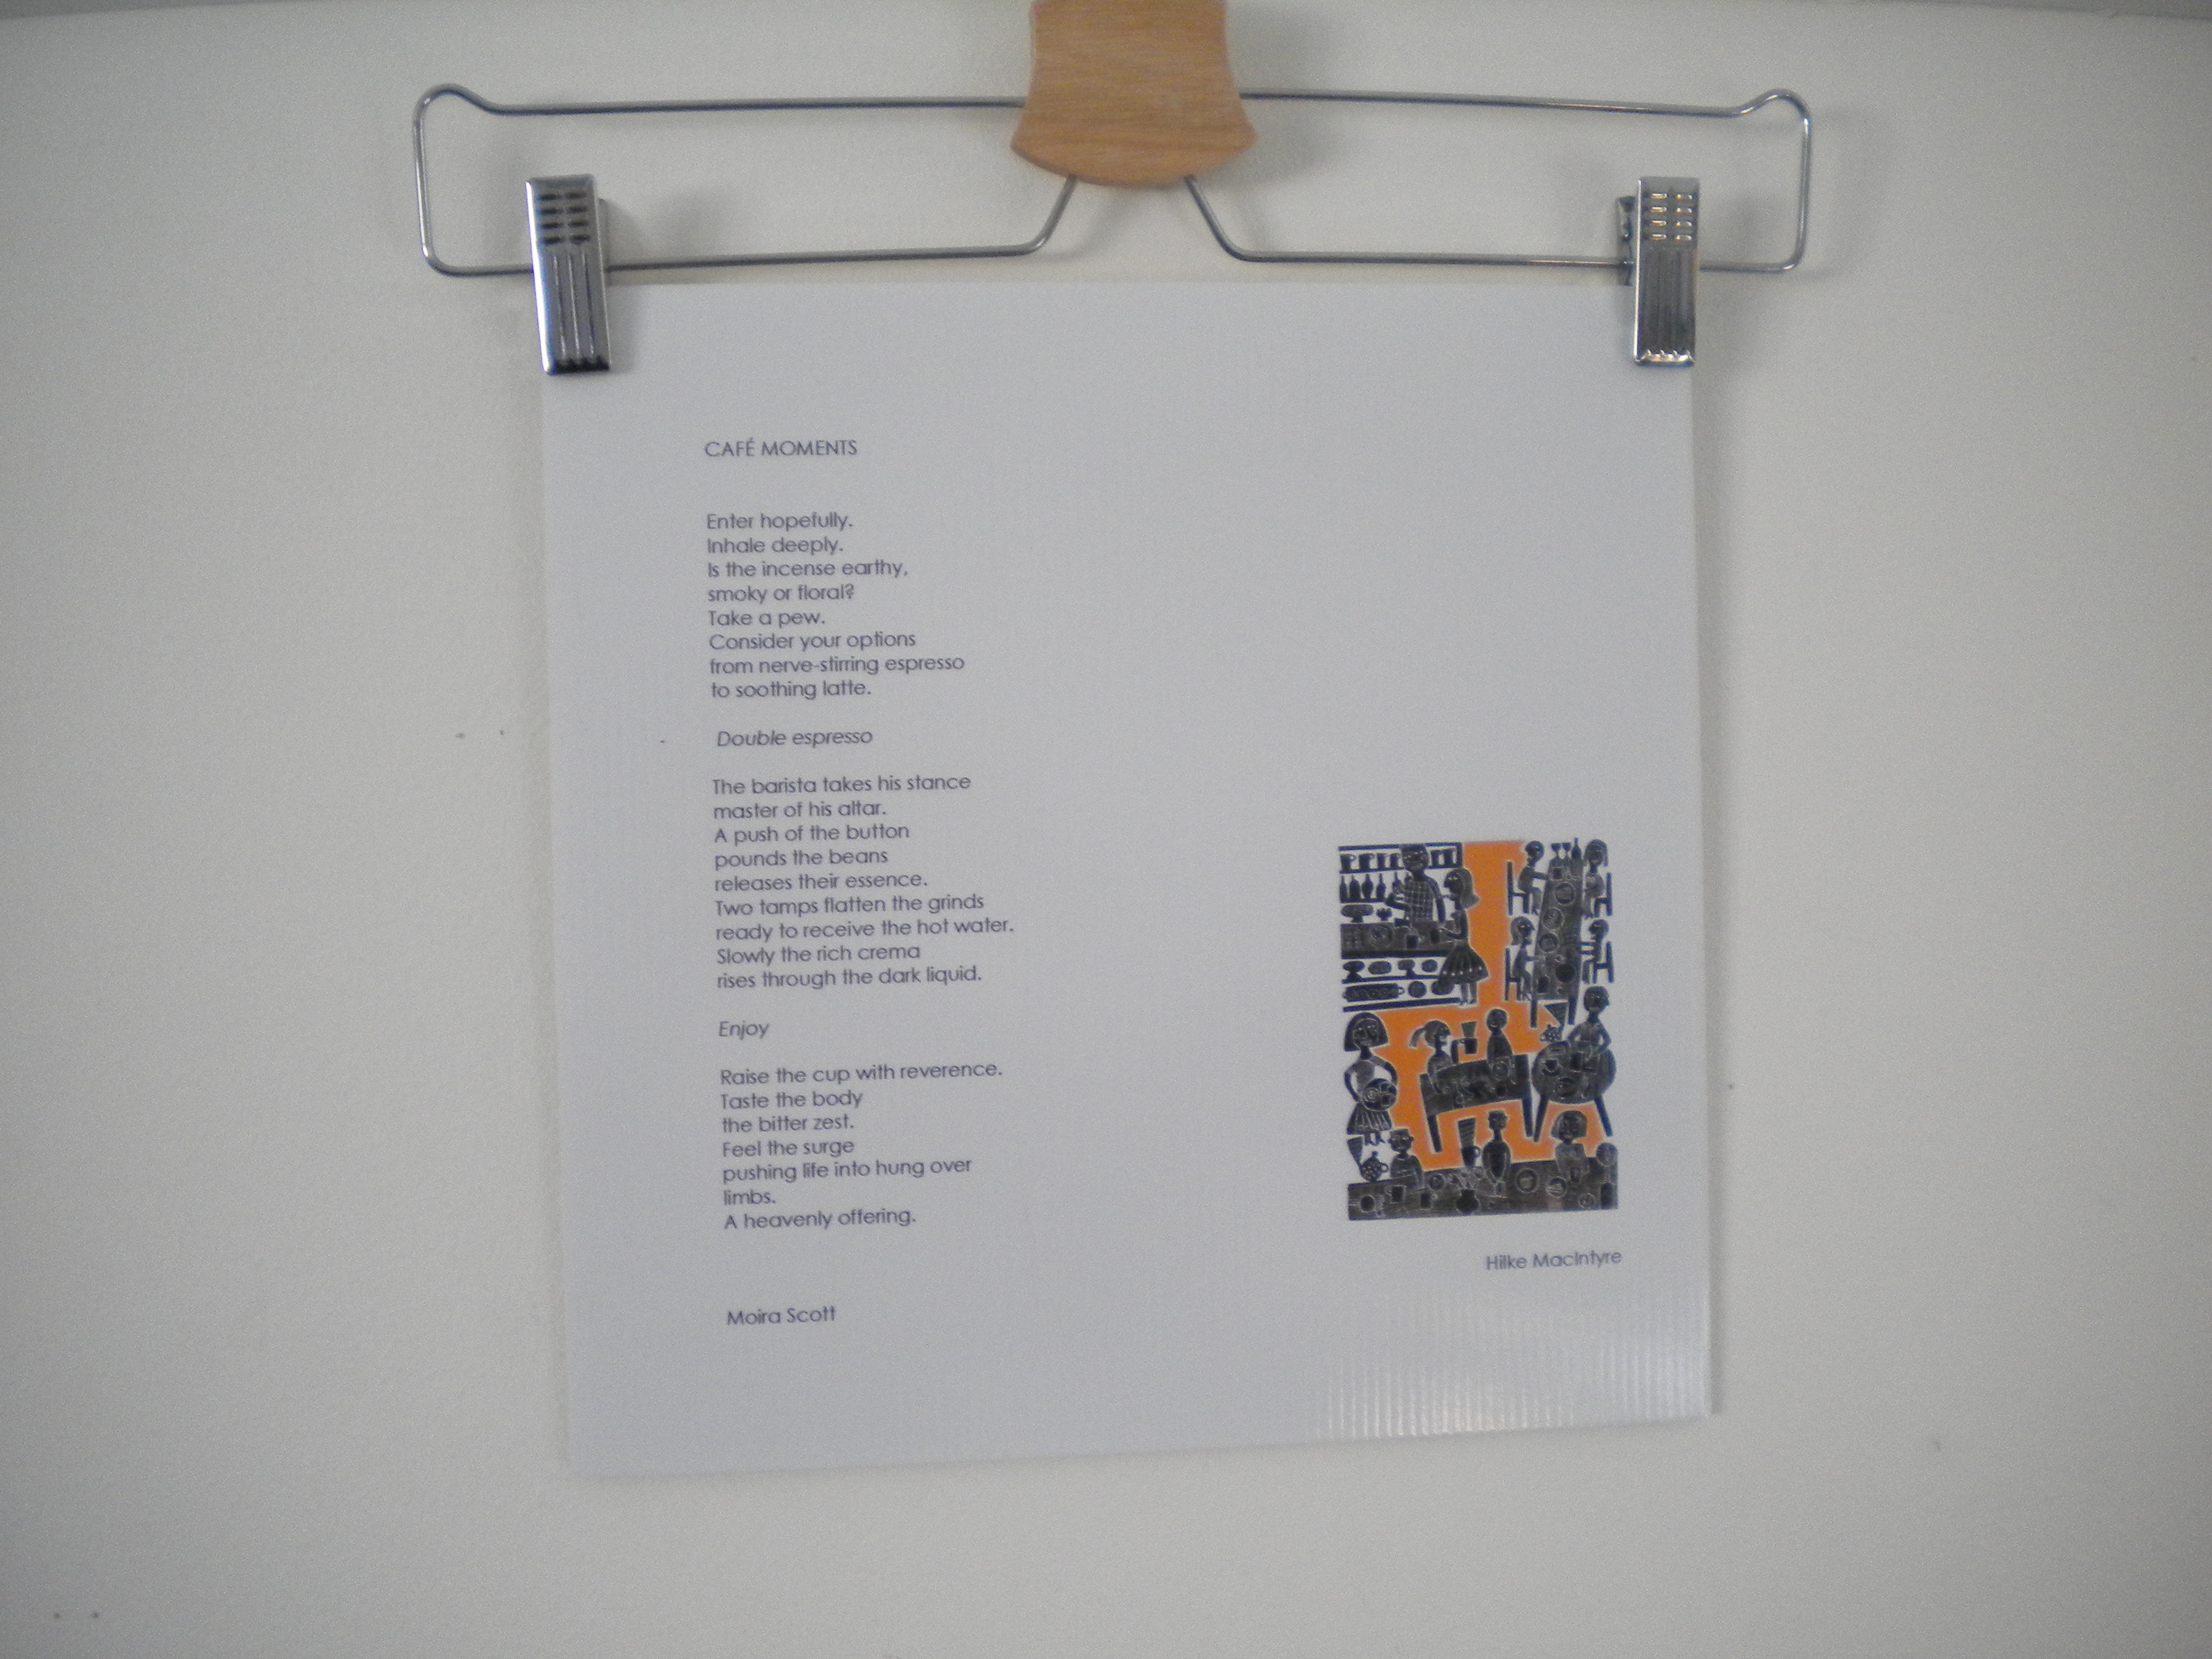 CAFÉ MOMENTS
Enter hopefully.
Inhale deeply.
Is the incense earthy,
smoky or floral?
Take a pew.
Consider your options
from nerve-stirring espresso
to soothing latte.
Double espresso
The barista takes his stance
master of his altar.
A push of the button
pounds the beans
releases their essence.
Two tamps flatten the grinds
ready to receive the hot water.
Slowly the rich crema
rises through the dark liquid.
Enjoy
Raise the cup with reverence.
Taste the body
the bitter zest.
Feel the surge
pushing life into hung over
limbs.
A heavenly offering.
Hilke MacIntyre
Moira Scott